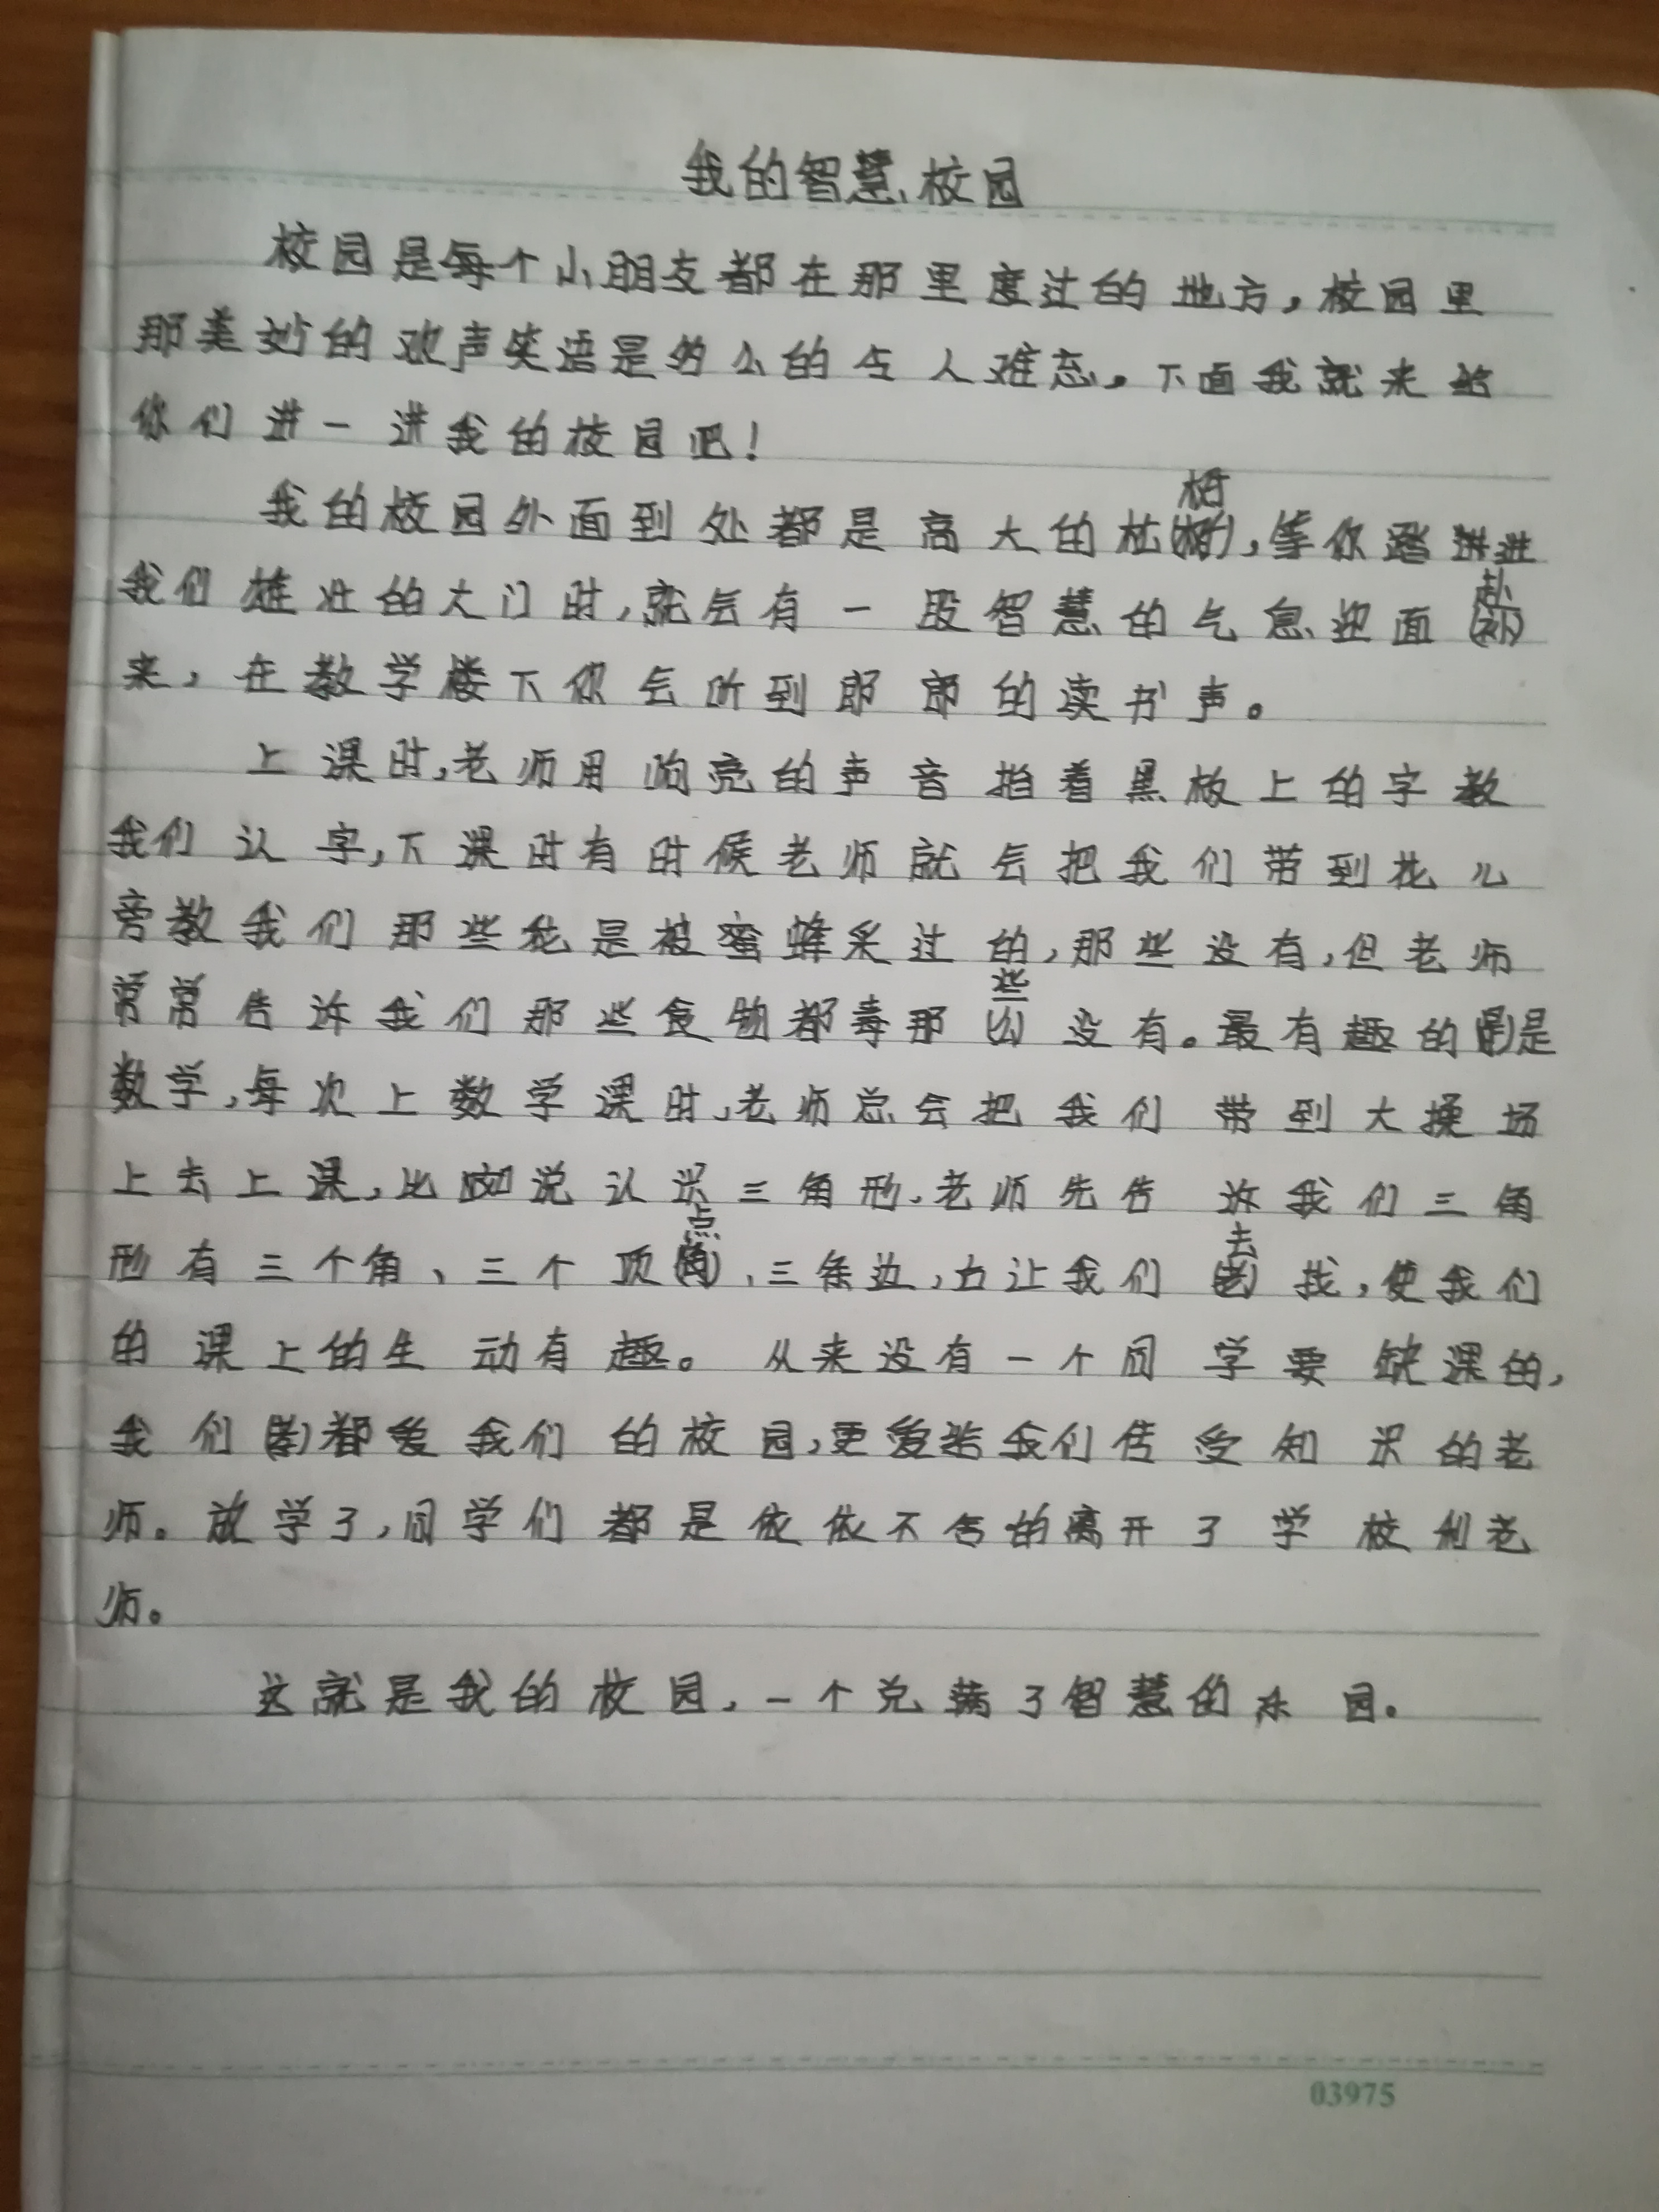 我的智慧校园
校园是每个小朋友都在那里度过的地方，校园里
那美妙的欢声笑语是多么的令人难忘。下面我就来给
你们讲一讲我的校园吧！
我的校园外面到处都是高大的松树，等你踏进
我们雄壮的大门时，就会有一股智慧的气息迎面扑
来，在教学楼下你会听到郎郎的读书声。
上课时，老师用响亮的声音指着黑板上的字教
我们认字，下课时有时候老师就会把我们带到花儿
旁教我们那些花是被蜜蜂采过的，那些没有，但老师
常常告诉我们那些食物都毒那些没有。最有趣的是
数学，每次上数学课时，老师总会把我们带到大操场
上去上课，比如说认识三角形，老师先告诉我们三角
形有三个角、三个顶点、三条边，力让我们去找，使我们
的课上的生动有趣。从来没有一个同学要缺课的，
我们都爱我们的校园，更爱给我们传受知识的老
师。放学了，同学们都是依依不舍的离开了学校和老
师。
这就是我的校园，一个充满了智慧的乐园。
03975